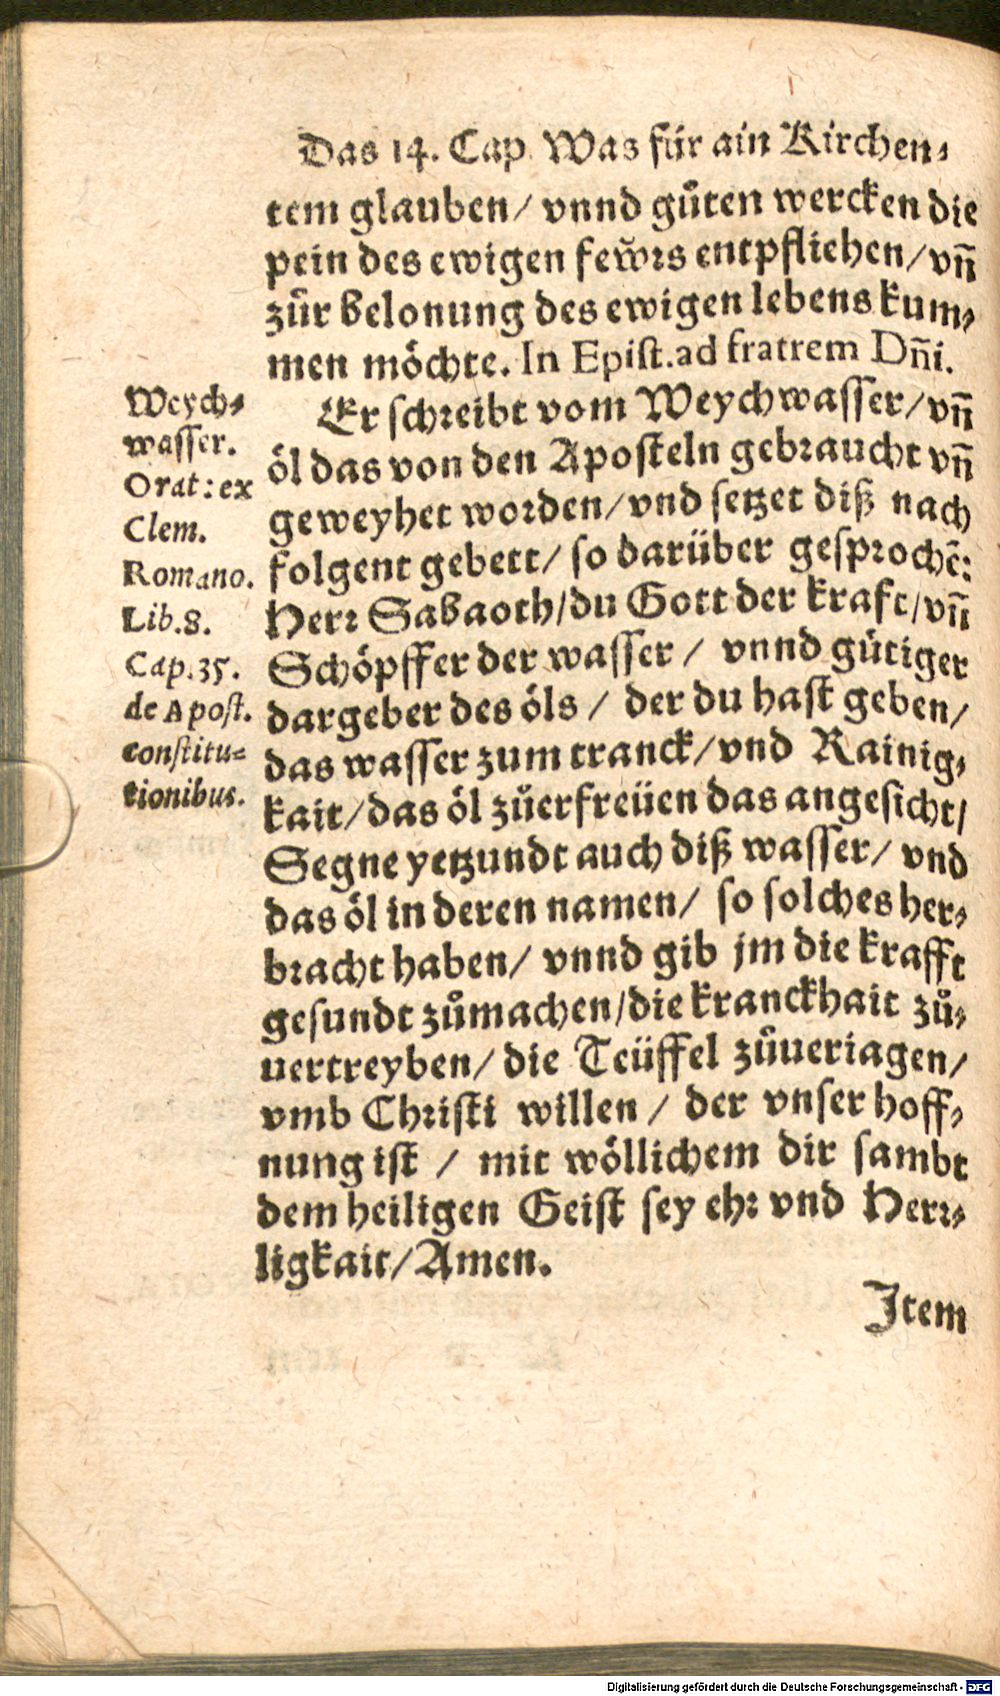 Das 14. Cap Was für ain Kirchen⸗
tem glauben/ vnnd gůten wercken die
pein des ewigen fewrs entpfliehen/ vñ
zůr belonung des ewigen lebens kum⸗
men möchte. In Epist. ad fratrem Dñi.
Weych⸗
wasser.
Orat: ex
Clem.
Romano.
Lib. 8.
Cap. 35.
de Apost.
constitu⸗
tionibus.
Er schreibt vom Weychwasser/ vñ
öl das von den Aposteln gebraucht vñ
geweyhet worden/ vnd setzet diß nach
folgent gebett/ so darüber gesprochẽ:
Herr Sabaoth/ du Gott der kraft/ vñ
Schöpffer der wasser / vnnd gütiger
dargeber des öls / der du hast geben/
das wasser zum tranck/ vnd Rainig⸗
kait/ das öl zůerfreüen das angesicht/
Segne yetzundt auch diß wasser/ vnd
das öl in deren namen/ so solches her⸗
bracht haben/ vnnd gib jm die krafft
gesundt zůmachen/ die kranckhait zů⸗
uertreyben/ die Teüffel zůueriagen/
vmb Christi willen / der vnser hoff⸗
nung ist / mit wöllichem dir sambt
dem heiligen Geist sey ehr vnd Herr⸗
ligkait/ Amen.
Item
Digitalisierung gefördert durch die Deutsche Forschungsgemeinschaft - DFG